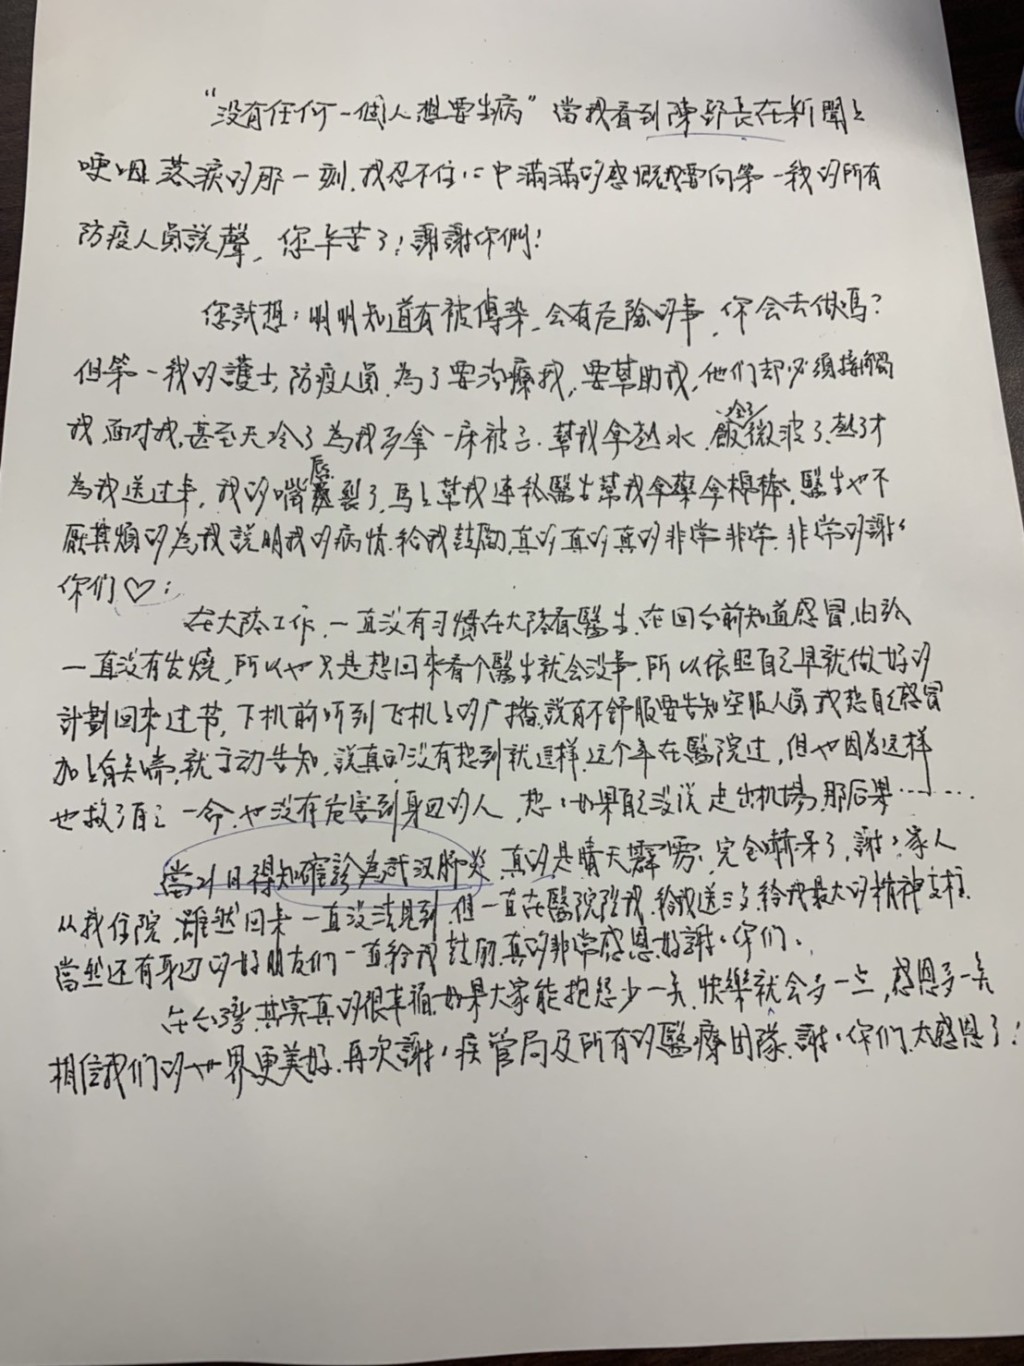 "没有任何一個人想要生病"當我看到陳部長在新聞上
哽咽落淚的那一刻,我忍不住心中滿滿的感慨我要向第一線的所有
防疫人員說聲,您辛苦了!謝謝你們!
您試想:明明知道有被傳染,会有危險的事,你会去做嗎?
但第一線的護士,防疫人員,為了要治療我,要幫助我,他们却必須接觸
我,面对我,甚至天冷了為我多拿一床被子.幫我拿熱水.飯冷了微波了熱了才
為我送过来,我的嘴唇裂了,馬上幫我連絡醫生幫我拿藥拿棉棒,醫生也不
厭其煩的為我說明我的病情.給我鼓勵,真的真的真的非常非常.非常的謝谢
你们♡!
在大陸工作,一直没有习慣在大陸看醫生,在回台前知道感冒,由於
一直没有发燒,所以也只是想回來看个醫生就会没事,所以依照自己早就做好的
計劃回來过节,下机前听到飞机上的广播,說有不舒服要告知空服人員我想自己感冒
加上有点喘,就主动告知,說真的没有想到就這样,这个年在醫院过,但也因為这样
也救了自己一命.也没有危害到身边的人,想:如果自己没说走出机場,那后果………
當21日得知確診為武汉肺炎,真的是晴天霹靂,完全嚇呆了,謝谢家人
从我住院,雖然回来一直没法見到,但一直在醫院陪我,給我送三多,給我最大的精神支柱.
當然还有身边的好朋友们一直給我鼓励,真的非常感恩.好謝谢你们.
在台灣,其实真的很幸福.如果大家能抱怨少一点,快樂就会多一点,感恩多一点
相信我们的世界更美好.再次謝谢疾管局及所有的醫療团隊.謝谢你们.太感恩了!